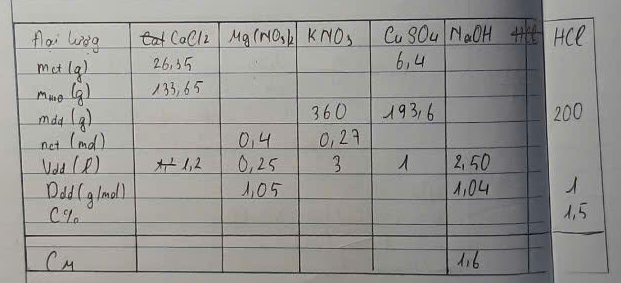 Đại lượng CaCl2 Mg(NO3)2 KNO3 CuSO4 NaOH HCl
mct (g) 26,35 6,4
mH2O (g) 133,65
mdd (g) 360 193,6 200
nct (mol) 0,4 0,27
Vdd (l) 1,2 0,25 3 1 2,50
Ddd (g/mol) 1,05 1,04 1
C% 1,5
CM 1,6